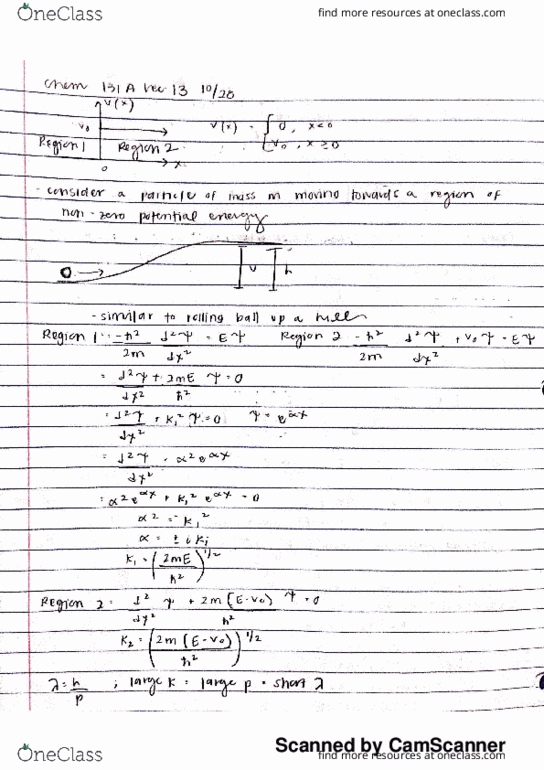 OneClass find more resources at oneclass.com
Chem 131A Lec 13 10/28
V(x)
V₀
V(x) = { 0, x<0
Region 1 Region 2
V₀, x ≥ 0
0 x
- consider a particle of mass m moving towards a region of
non-zero potential energy
V h
- similar to rolling ball up a hill
Region 1: -ħ²/2m d²ψ/dx² = Eψ Region 2 -ħ²/2m d²ψ/dx² + V₀ψ = Eψ
= d²ψ/dx² + 2mE/ħ² ψ = 0
= d²ψ/dx² + K₁²ψ = 0 ψ = e^αx
= d²ψ/dx² = α²e^αx
= α²e^αx + K₁² e^αx = 0
α² = -K₁²
α = ± i K₁
K₁ = (2mE/ħ²)^1/2
Region 2 = d²/dx² ψ + 2m(E-V₀)/ħ² ψ = 0
K₂ = (2m(E-V₀)/ħ²)^1/2
λ = h/p ; large K = large p = short λ
Scanned by CamScanner
OneClass find more resources at oneclass.com